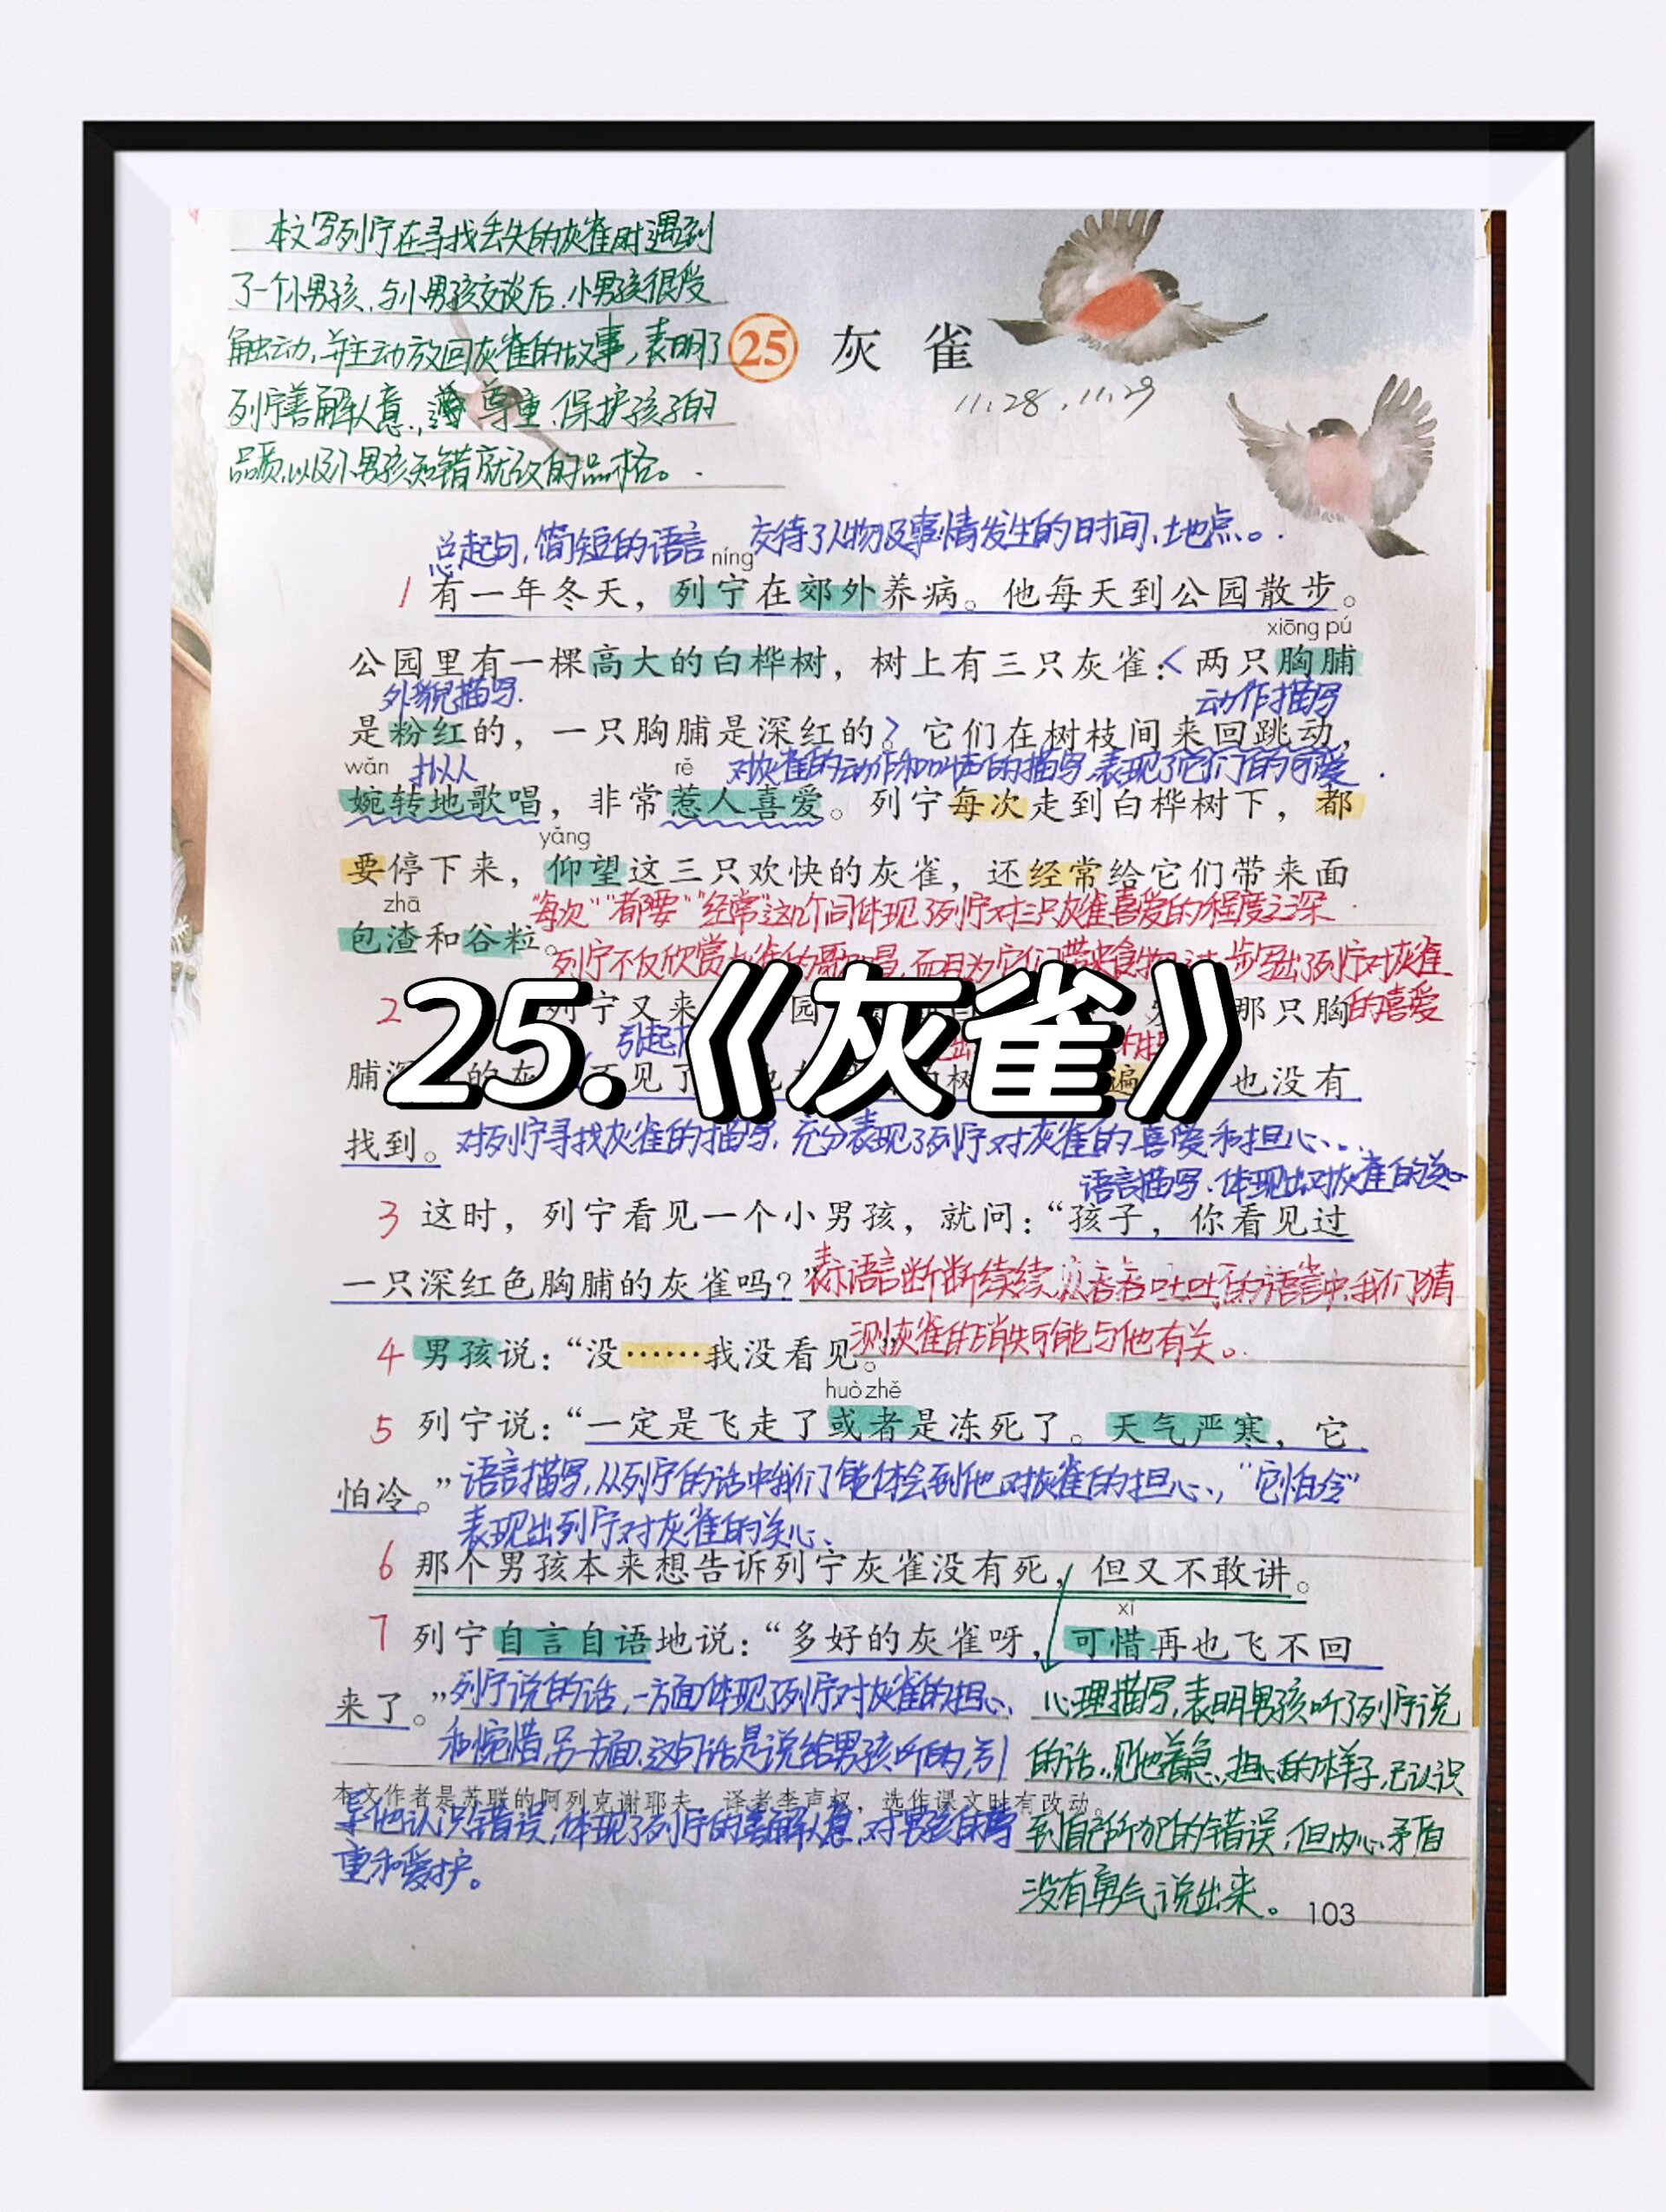 本文写列宁在寻找丢失的灰雀时遇到
了一个小男孩,与小男孩交谈后,小男孩很受
触动,并主动放回灰雀的故事,表明了
列宁善解人意,尊重、保护孩子的
品质,以及小男孩知错就改的品格。
25 灰雀
11.28, 11.29
总起句,简短的语言 交待了人物及事情发生的时间、地点。
níng
1 有一年冬天,列宁在郊外养病。他每天到公园散步。
xiōng pú
公园里有一棵高大的白桦树,树上有三只灰雀:两只胸脯
外貌描写. 动作描写
是粉红的,一只胸脯是深红的。它们在树枝间来回跳动,
wǎn 拟人 rě 对灰雀的动作和叫声的描写,表现了它们的可爱.
婉转地歌唱,非常惹人喜爱。列宁每次走到白桦树下,都
yǎng
要停下来,仰望这三只欢快的灰雀,还经常给它们带来面
zhā “每次”“都要”“经常”这几个词体现了列宁对三只灰雀喜爱的程度之深
包渣和谷粒。
列宁不仅欣赏灰雀的歌唱,而且为它们带来食物,进一步写出了列宁对灰雀
的喜爱
2 列宁又来 园 那只胸
引起
25.《灰雀》
脯深 的灰 不见了 遍 也没有
找到。 对列宁寻找灰雀的描写,充分表现了列宁对灰雀的喜爱和担心.
语言描写.体现出对灰雀的关心
3 这时,列宁看见一个小男孩,就问:“孩子,你看见过
一只深红色胸脯的灰雀吗?”
表示语言断断续续,从吞吞吐吐的语言中,我们猜
测灰雀的消失可能与他有关。
4 男孩说:“没……我没看见。”
huò zhě
5 列宁说:“一定是飞走了或者是冻死了。天气严寒,它
怕冷。”
语言描写,从列宁的话中我们能体会到他对灰雀的担心,“它怕冷”
表现出列宁对灰雀的关心.
6 那个男孩本来想告诉列宁灰雀没有死,但又不敢讲。
xī
7 列宁自言自语地说:“多好的灰雀呀,可惜再也飞不回
来了。”
列宁说的话,一方面体现了列宁对灰雀的担心、
和惋惜,另一方面,这句话是说给男孩听的,引
导他认识错误,体现了列宁的善解人意,对男孩的尊
重和爱护。
心理描写,表明男孩听了列宁说
的话,见他着急、担心的样子,已认识
到自己所犯的错误,但内心矛盾
没有勇气说出来。
本文作者是苏联的阿列克谢耶夫,译者李声权,选作课文时有改动。
103